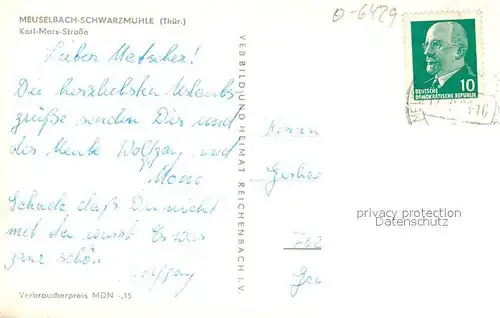 MEUSELBACH-SCHWARZMÜHLE (Thür.)
Karl-Marx-Straße
0-6429
Lieber Metscher!
Die herzlichsten Urlaubs-
grüße senden Dir und
der Meute Wolfgang und
Mono
Schade, daß Du nicht
mit warst. Es war
ganz schön
Wolfgang
Verbraucherpreis MDN -,15
VEB BILD UND HEIMAT REICHENBACH I. V.
10
DEUTSCHE
DEMOKRATISCHE REPUBLIK
Herrn
privacy protection
Datenschutz